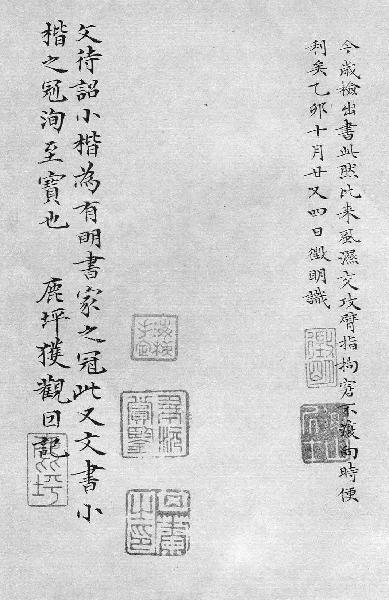 今歲檢出書此然比來風濕交攻臂指拘窘不復向時便
利矣乙卯十月廿又四日徵明識
文待詔小楷為有明書家之冠此又文書小
楷之冠洵至寶也 鹿坪獲觀回記
徵明